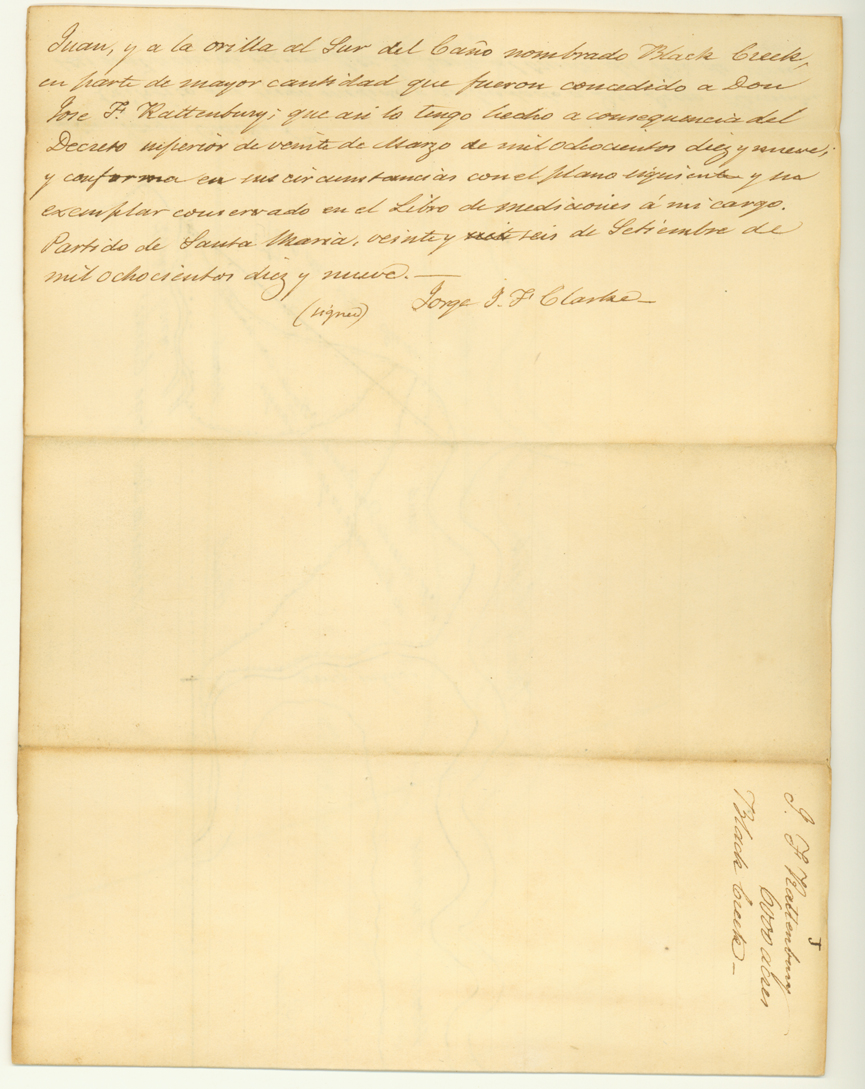 Juan, y a la orilla al Sur del Caño nombrado Black Creek,
en parte de mayor cantidad que fueron concedido a Don
Jose F. Rattenbury; que asi lo tengo hecho a consequencia del
Decreto superior de veinte de Marzo de mil ochocientos diez y nueve;
y conforma en sus circumstancias con el plano siguiente y su
exemplar conservado en el Libro de mediciones á mi cargo.
Partido de Santa Maria, veinte y seis de Setiembre de
mil ochocientos diez y nueve.—
(signed) Jorge J. F Clarke—
J. F Rattenbury
6000 acres
Black Creek—